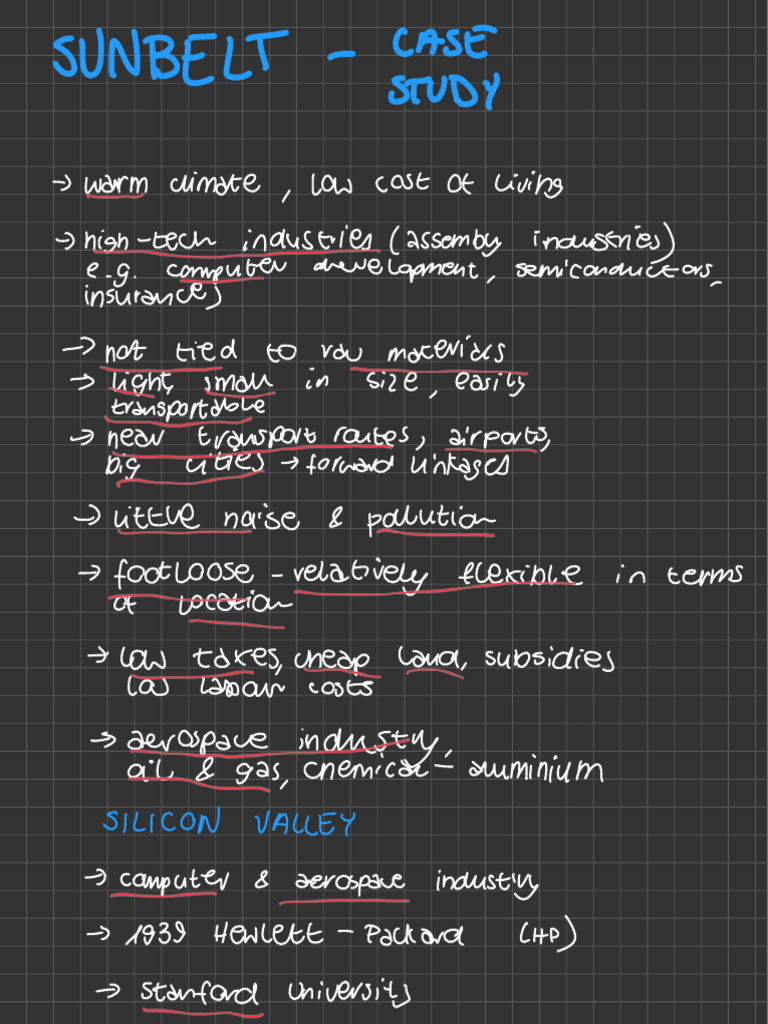 SUNBELT - CASE
STUDY
→ warm climate, low cost of living
→ high-tech industries (assemby industries)
e.g. computer development, semiconductors,
insurance)
→ not tied to raw materials
→ light, small in size, easily
transportable
→ near transport routes, airports,
big cities → forward linkages
→ little noise & pollution
→ footloose - relatively flexible in terms
of location
→ low taxes, cheap land, subsidies
low labour costs
→ aerospace industry,
oil & gas, chemical - aluminium
SILICON VALLEY
→ computer & aerospace industry
→ 1939 Hewlett - Packard (HP)
→ Stanford University